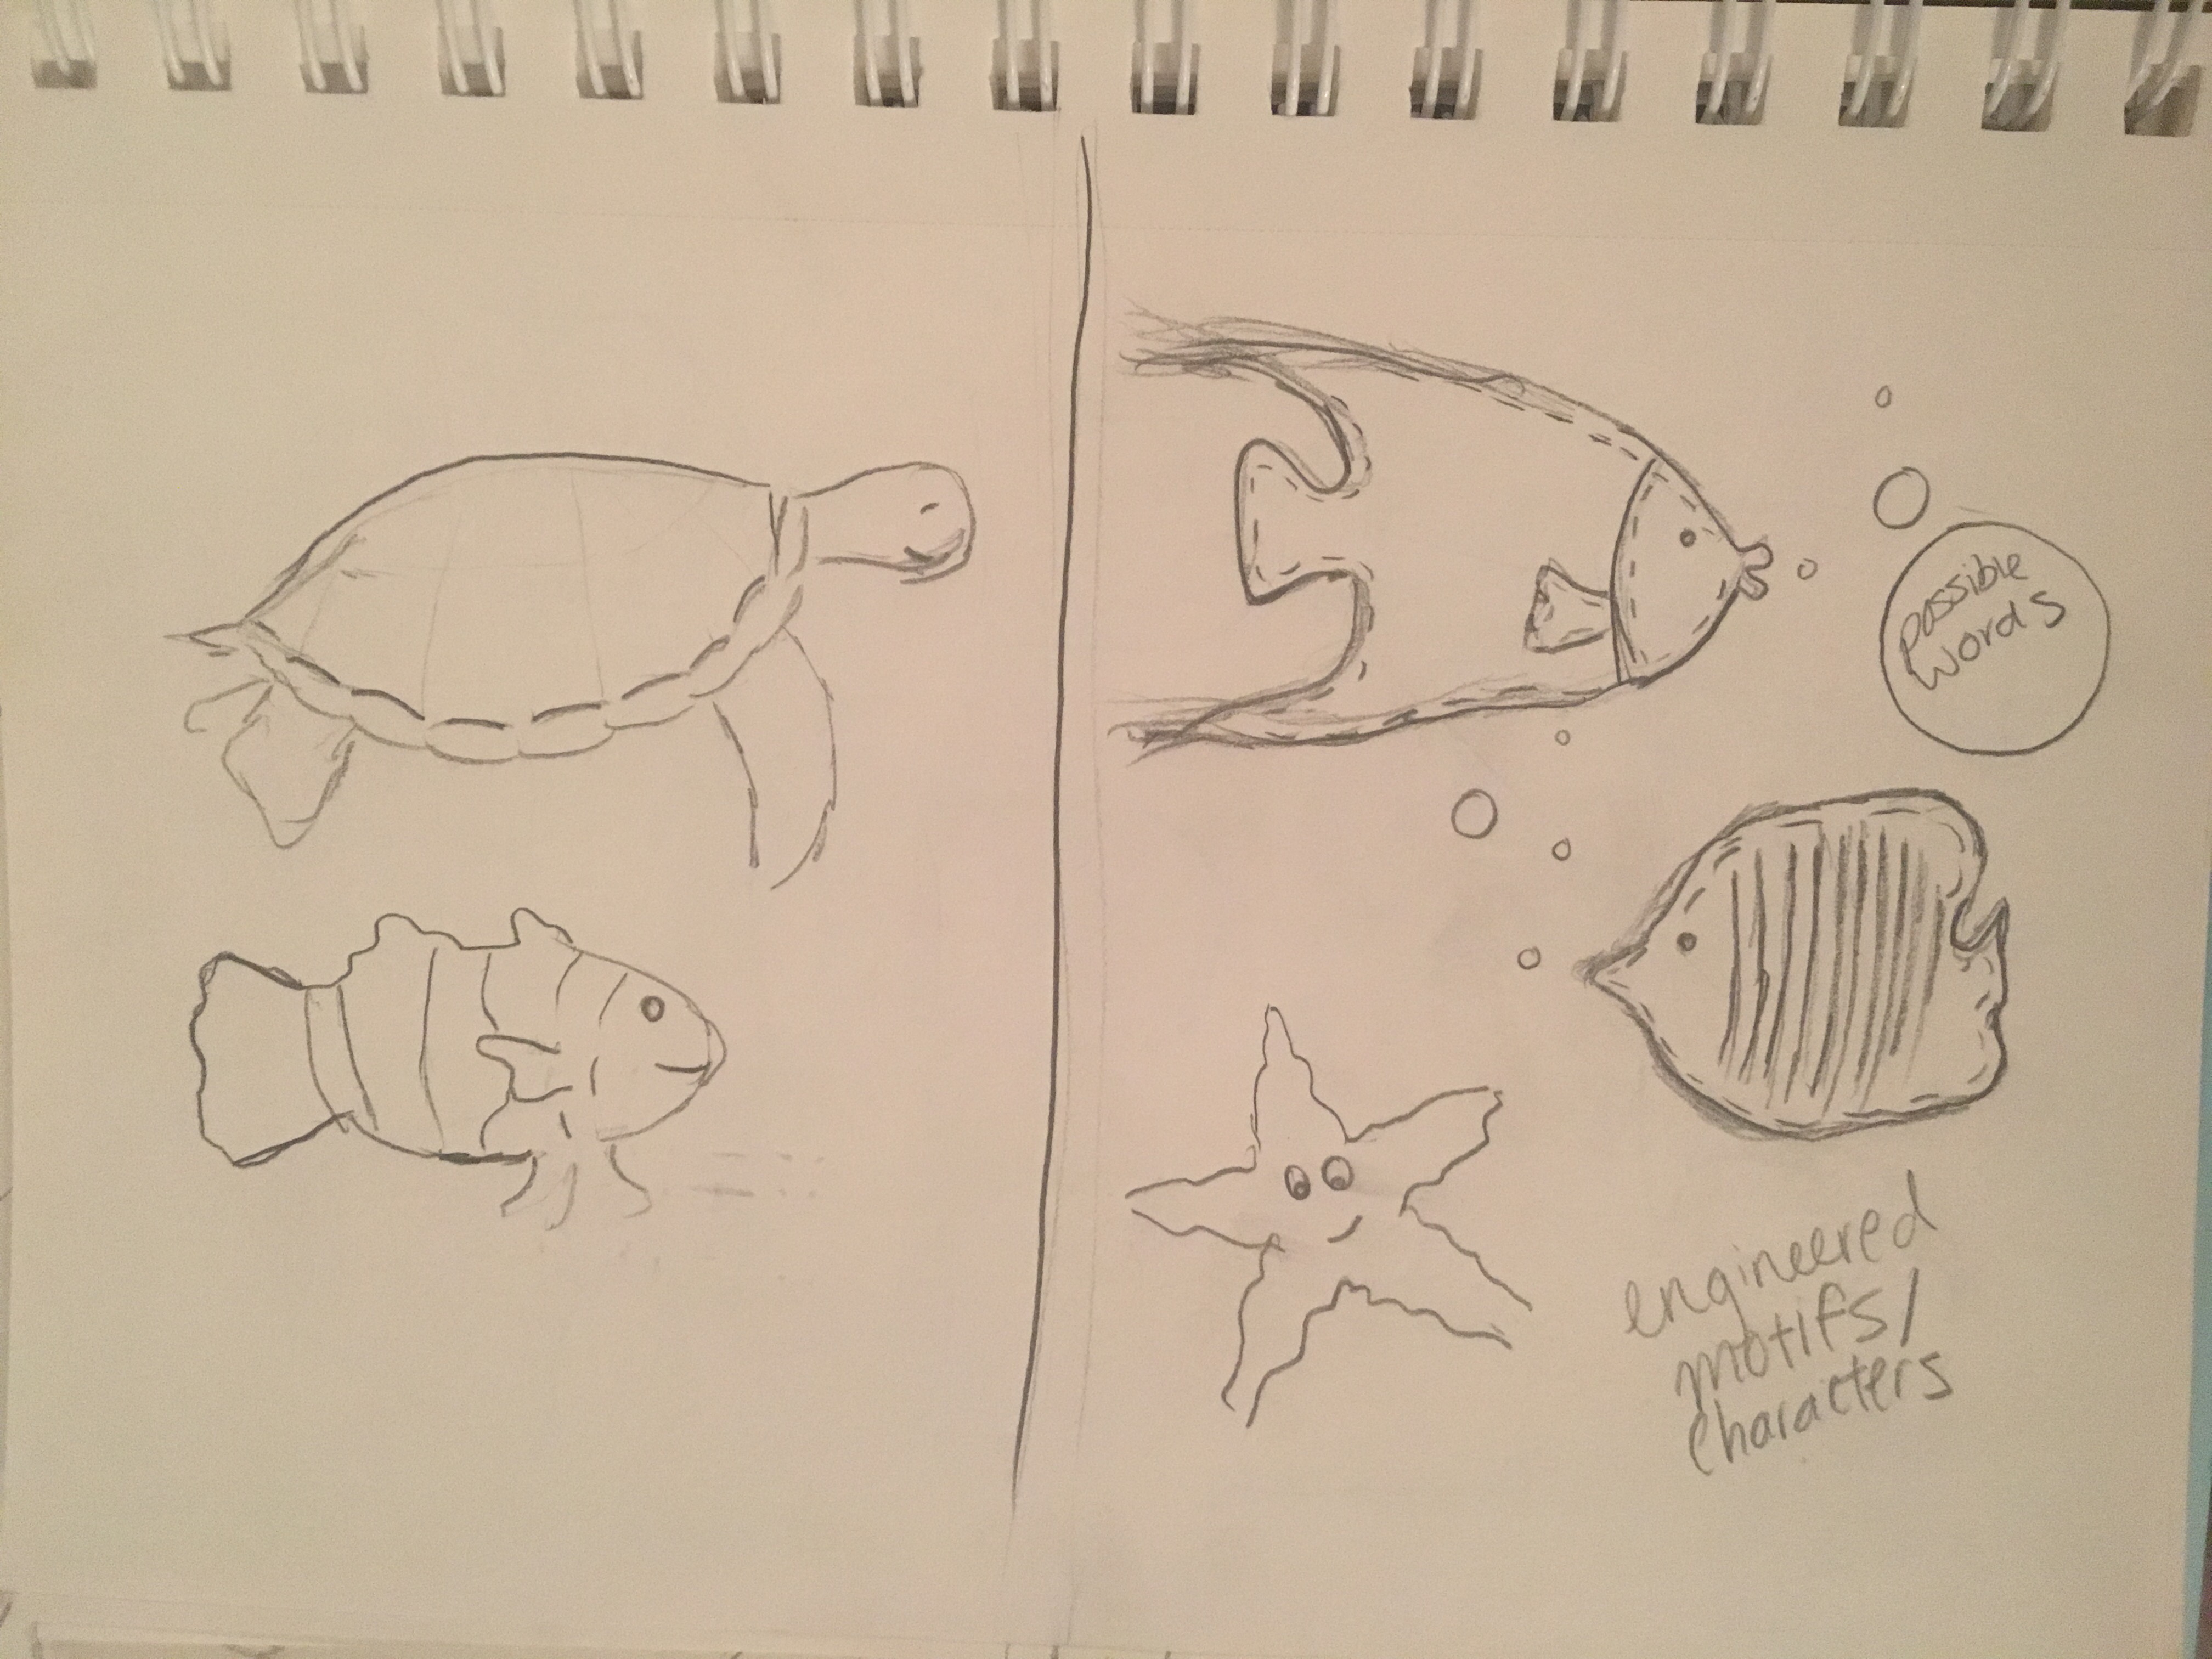 possible
words
engineered
motifs/
characters